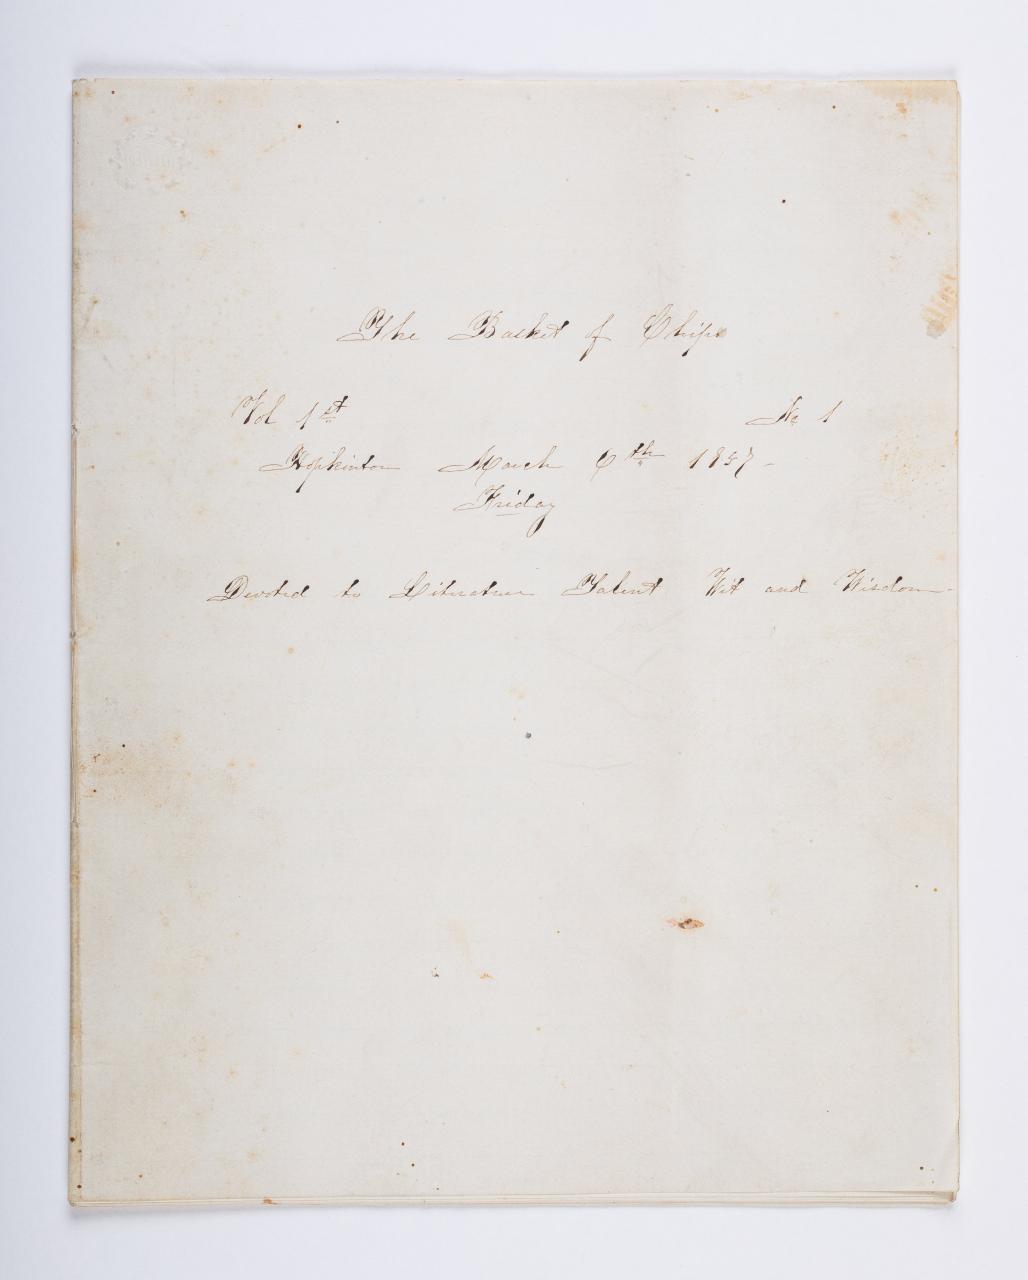 The Basket of Chips
Vol 1st No 1
Hopkinton March 6th 1857 -
Friday
Devoted to Literature Talent Wit and Wisdom -